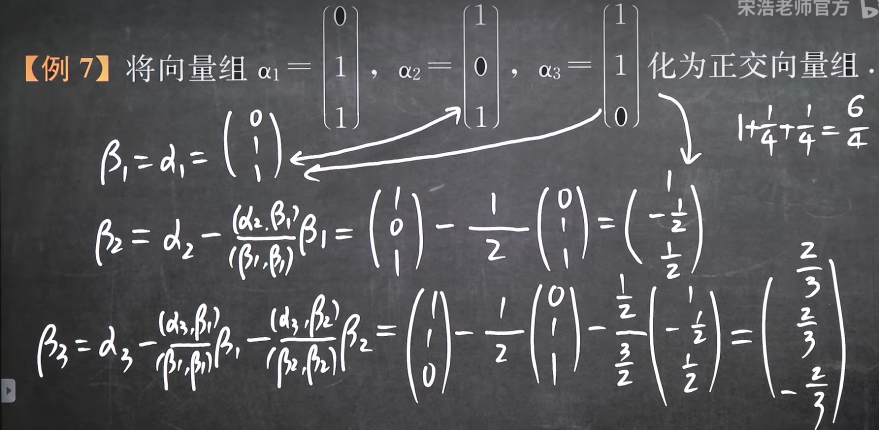 宋浩老师官方
【例 7】将向量组 α₁ = (0 1 1), α₂ = (1 0 1), α₃ = (1 1 0) 化为正交向量组.
1+1/4+1/4=6/4
β₁ = α₁ = (0 1 1)
β₂ = α₂ − (α₂,β₁)/(β₁,β₁) β₁ = (1 0 1) − 1/2 (0 1 1) = (1 −1/2 1/2)
β₃ = α₃ − (α₃,β₁)/(β₁,β₁) β₁ − (α₃,β₂)/(β₂,β₂) β₂ = (1 1 0) − 1/2 (0 1 1) − (1/2)/(3/2) (1 −1/2 1/2) = (2/3 2/3 −2/3)